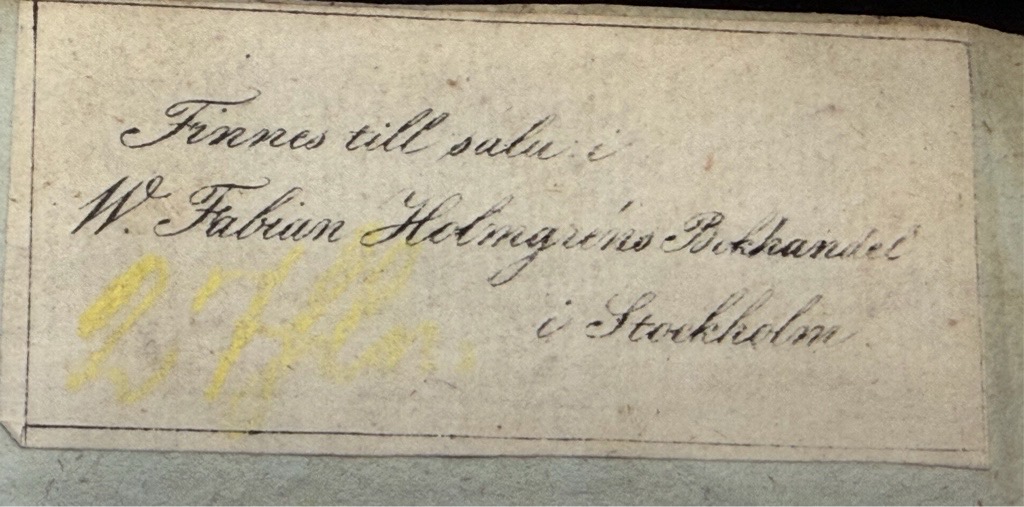 Finnes till salu i
W. Fabian Holmgréns Bokhandel
i Stockholm